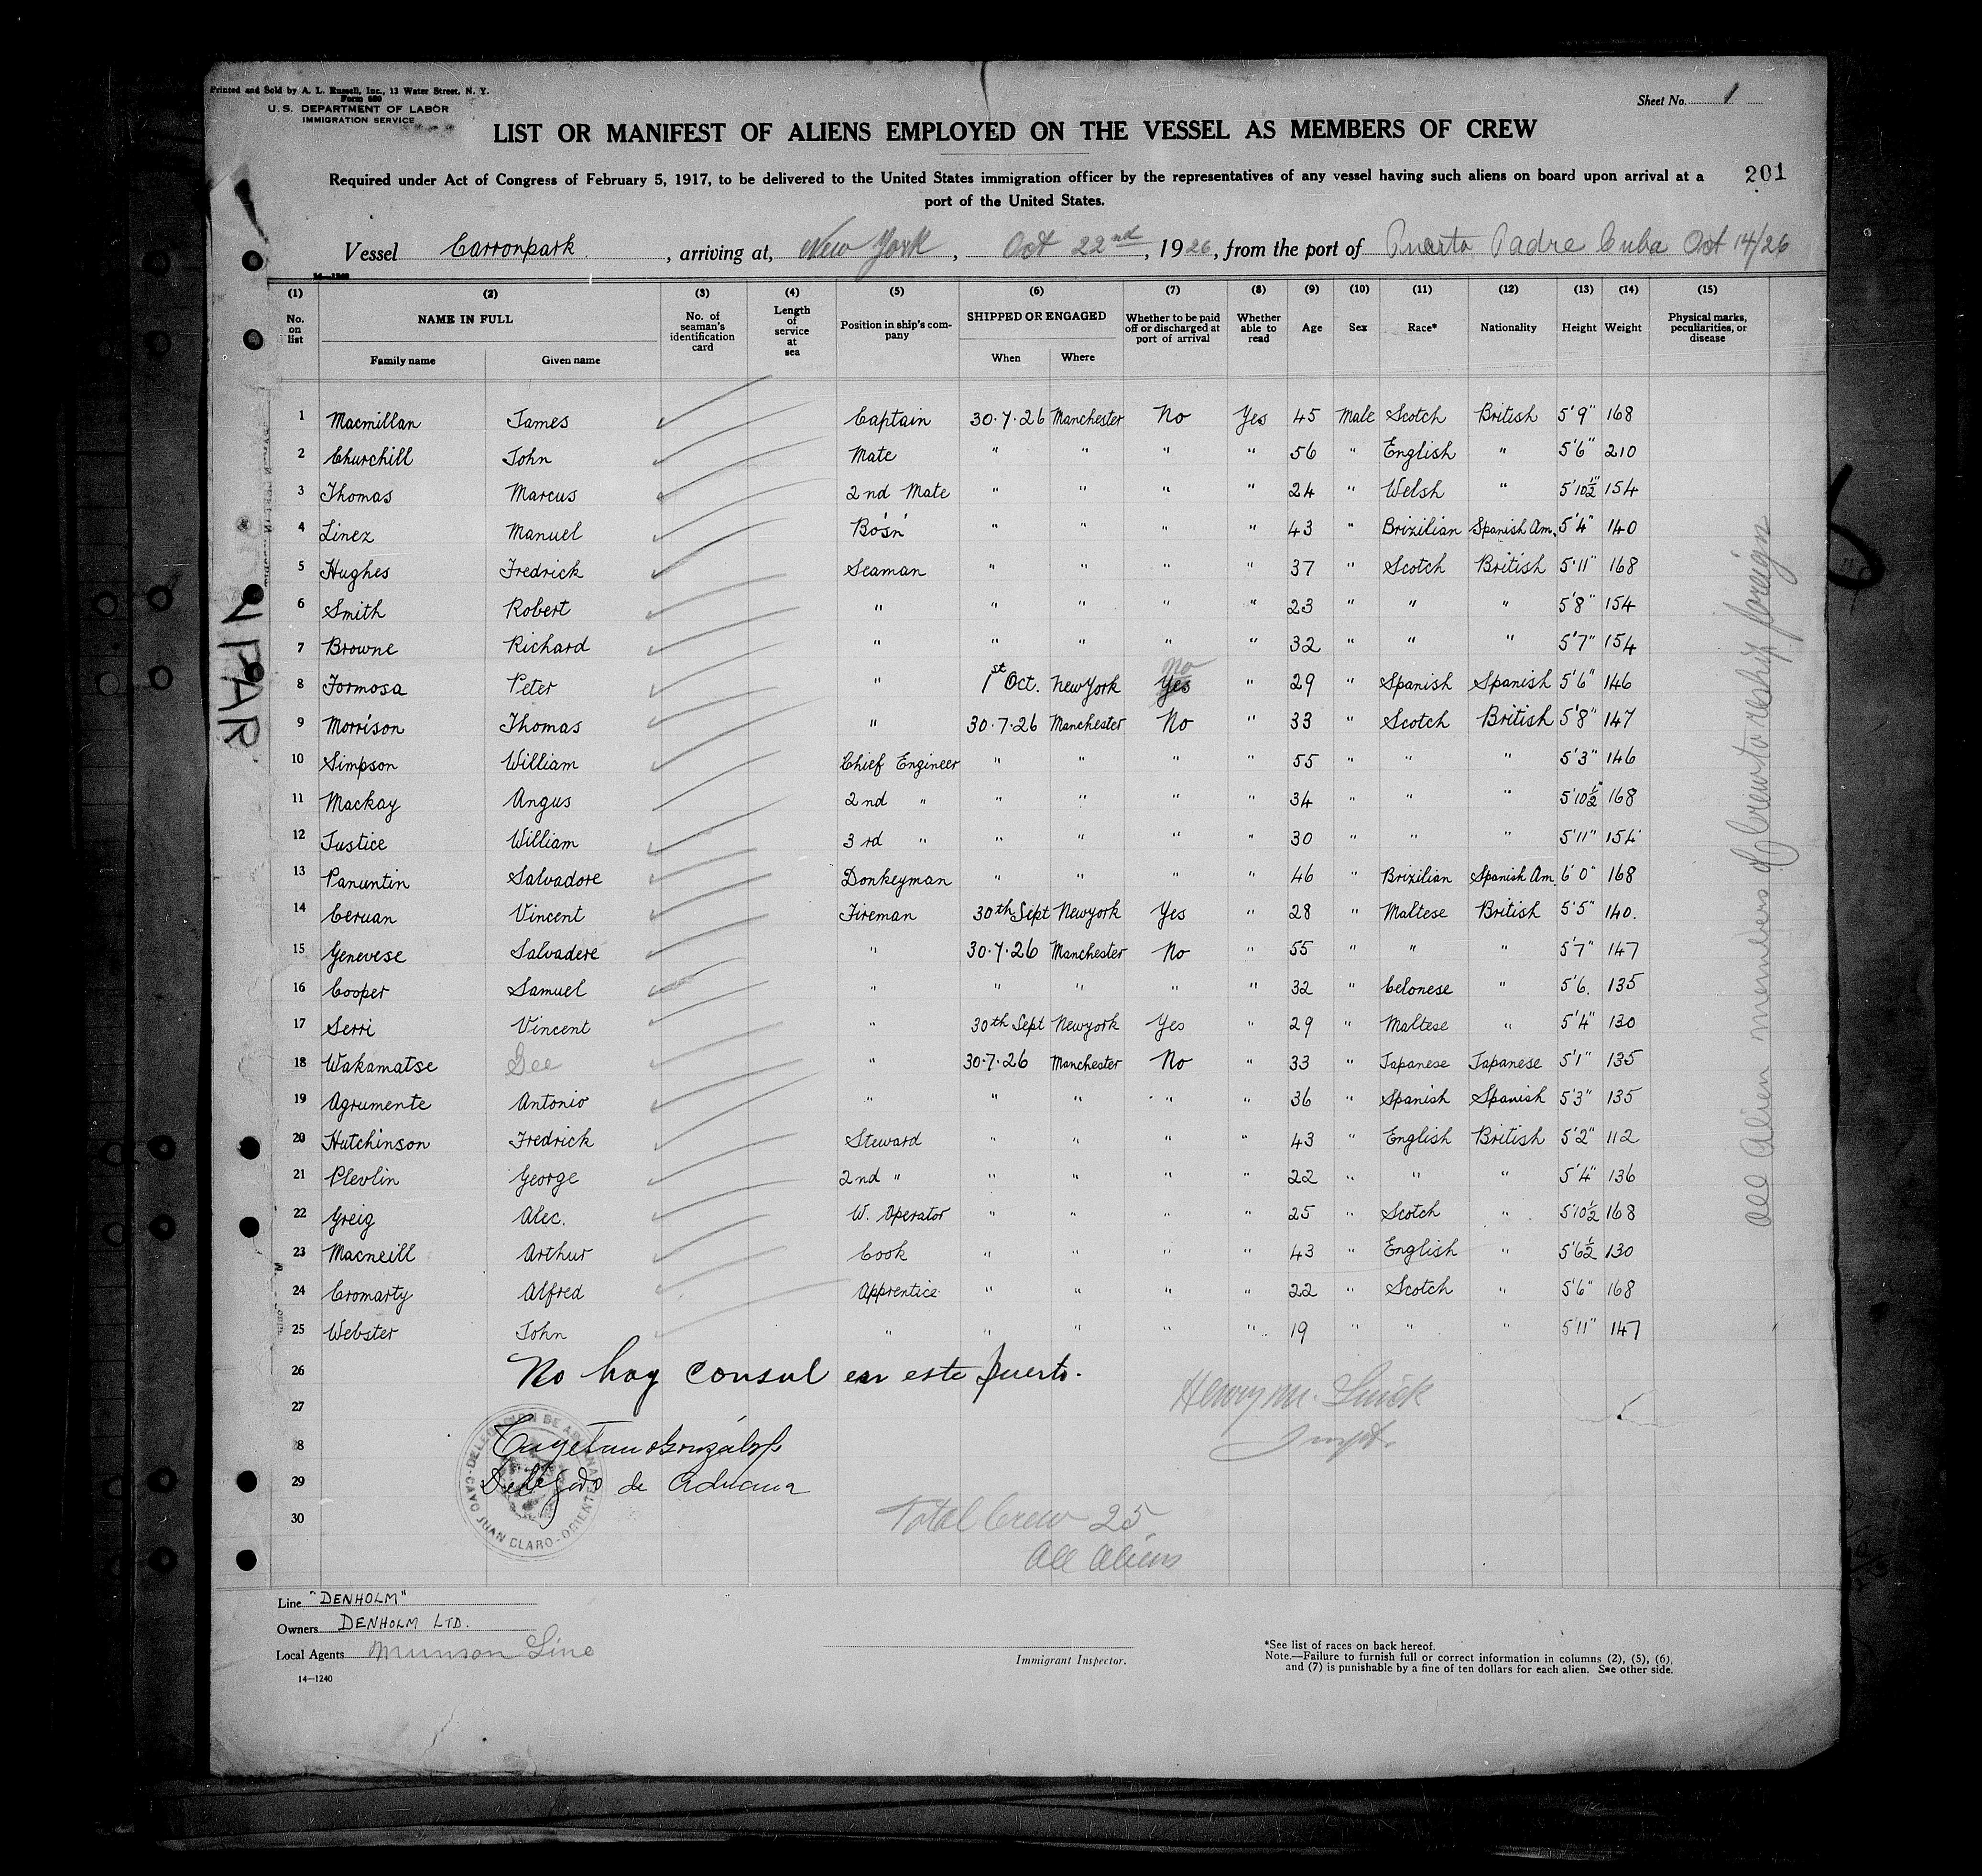 Printed and Sold by A. L. Russell, Inc., 13 Water Street, N. Y.
Form 680
U. S. DEPARTMENT OF LABOR
IMMIGRATION SERVICE
Sheet No. 1
LIST OR MANIFEST OF ALIENS EMPLOYED ON THE VESSEL AS MEMBERS OF CREW
201
Required under Act of Congress of February 5, 1917, to be delivered to the United States immigration officer by the representatives of any vessel having such aliens on board upon arrival at a
port of the United States.
Vessel Carronpark, arriving at, New York, Oct 22nd, 1926, from the port of Puerto Padre Cuba Oct 14/26
14—1240
(1) (2) (3) (4) (5) (6) (7) (8) (9) (10) (11) (12) (13) (14) (15)
No. on list NAME IN FULL Family name Given name No. of seaman's identification card Length of service at sea Position in ship's company SHIPPED OR ENGAGED When Where Whether to be paid off or discharged at port of arrival Whether able to read Age Sex Race* Nationality Height Weight Physical marks, peculiarities, or disease
1 Macmillan James Captain 30.7.26 Manchester No Yes 45 Male Scotch British 5'9" 168
2 Churchill John Mate " " " " 56 " English " 5'6" 210
3 Thomas Marcus 2nd Mate " " " " 24 " Welsh " 5'10½" 154
4 Linez Manuel Bo'sn " " " " 43 " Brizilian Spanish Am. 5'4" 140
5 Hughes Fredrick Seaman " " " " 37 " Scotch British 5'11" 168
6 Smith Robert " " " " " 23 " " " 5'8" 154
7 Browne Richard " " " " " 32 " " " 5'7" 154
8 Formosa Peter " 1st Oct. New York Yes No " 29 " Spanish Spanish 5'6" 146
9 Morrison Thomas " 30.7.26 Manchester No " 33 " Scotch British 5'8" 147
10 Simpson William Chief Engineer " " " " 55 " " " 5'3" 146
11 Mackay Angus 2nd " " " " " 34 " " " 5'10½" 168
12 Justice William 3rd " " " " " 30 " " " 5'11" 154
13 Panuntin Salvadore Donkeyman " " " " 46 " Brizilian Spanish Am. 6'0" 168
14 Ceruan Vincent Fireman 30th Sept New york Yes " 28 " Maltese British 5'5" 140.
15 Genevese Salvadere " 30.7.26 Manchester No " 55 " " " 5'7" 147
16 Cooper Samuel " " " " " 32 " Celonese " 5'6. 135
17 Serri Vincent " 30th Sept New york Yes " 29 " Maltese " 5'4" 130
18 Wakamatse Gee " 30.7.26 Manchester No " 33 " Japanese Japanese 5'1" 135
19 Agrumente Antonio " " " " " 36 " Spanish Spanish 5'3" 135
20 Hutchinson Fredrick Steward " " " " 43 " English British 5'2" 112
21 Plevlin George 2nd " " " " " 22 " " " 5'4" 136
22 Greig Alec. W. Operator " " " " 25 " Scotch " 5'10½ 168
23 Macneill Arthur Cook " " " " 43 " English " 5'6½ 130
24 Cromarty Alfred Apprentice " " " " 22 " Scotch " 5'6" 168
25 Webster John " " " " " 19 " " " 5'11" 147
26 No hay consul en este puerto.
27 Henry M.
8 Cayetano Gonzalez Inspt.
29 Delegado de Aduana
30 Total Crew 25
All Aliens
DELEGACION DE ADUANA
CAYO JUAN CLARO - ORIENTE
All Alien members of Crew to reship foreign
Line "DENHOLM"
Owners DENHOLM LTD.
Local Agents Munson Line
14—1240
Immigrant Inspector.
*See list of races on back hereof.
Note.—Failure to furnish full or correct information in columns (2), (5), (6),
and (7) is punishable by a fine of ten dollars for each alien. See other side.